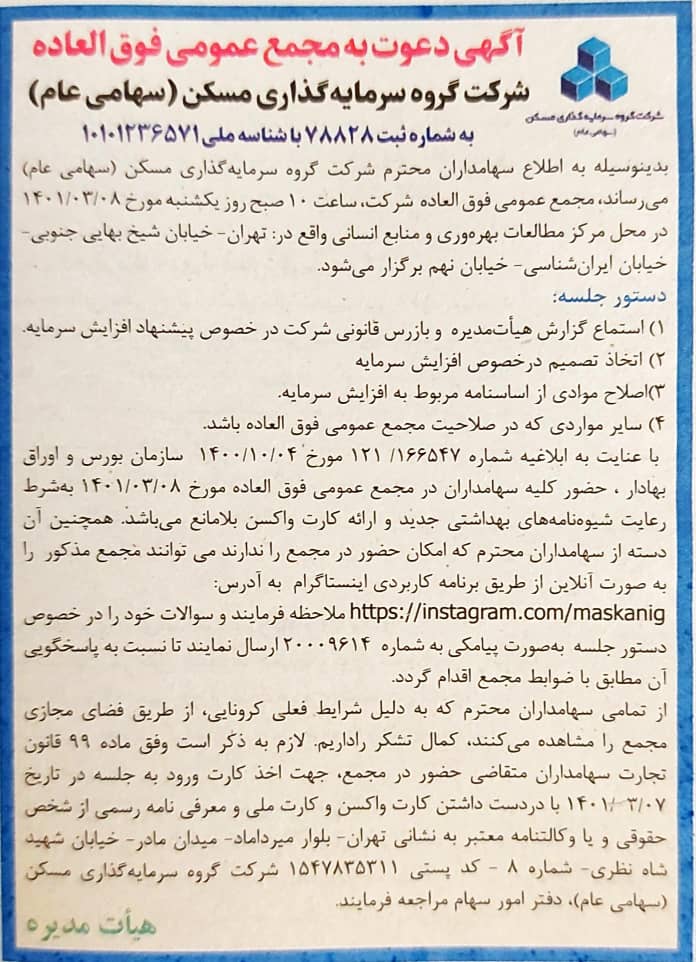 آگهی دعوت به مجمع عمومی فوق العاده
شرکت گروه سرمایه‌گذاری مسکن (سهامی عام)
شرکت گروه سرمایه‌گذاری مسکن
(سهامی عام)
به شماره ثبت ۷۸۸۲۸ با شناسه ملی ۱۰۱۰۱۲۳۶۵۷۱
بدینوسیله به اطلاع سهامداران محترم شرکت گروه سرمایه‌گذاری مسکن (سهامی عام)
می‌رساند، مجمع عمومی فوق العاده شرکت، ساعت ۱۰ صبح روز یکشنبه مورخ ۱۴۰۱/۰۳/۰۸
در محل مرکز مطالعات بهره‌وری و منابع انسانی واقع در: تهران- خیابان شیخ بهایی جنوبی-
خیابان ایران‌شناسی- خیابان نهم برگزار می‌شود.
دستور جلسه:
۱) استماع گزارش هیأت‌مدیره و بازرس قانونی شرکت در خصوص پیشنهاد افزایش سرمایه.
۲) اتخاذ تصمیم درخصوص افزایش سرمایه
۳)اصلاح موادی از اساسنامه مربوط به افزایش سرمایه.
۴) سایر مواردی که در صلاحیت مجمع عمومی فوق العاده باشد.
با عنایت به ابلاغیه شماره ۱۶۶۵۴۷/ ۱۲۱ مورخ ۱۴۰۰/۱۰/۰۴ سازمان بورس و اوراق
بهادار ، حضور کلیه سهامداران در مجمع عمومی فوق العاده مورخ ۱۴۰۱/۰۳/۰۸ به‌شرط
رعایت شیوه‌نامه‌های بهداشتی جدید و ارائه کارت واکسن بلامانع می‌باشد. همچنین آن
دسته از سهامداران محترم که امکان حضور در مجمع را ندارند می توانند مجمع مذکور را
به صورت آنلاین از طریق برنامه کاربردی اینستاگرام به آدرس:
https://instagram.com/maskanig ملاحظه فرمایند و سوالات خود را در خصوص
دستور جلسه به‌صورت پیامکی به شماره ۲۰۰۰۹۶۱۴ ارسال نمایند تا نسبت به پاسخگویی
آن مطابق با ضوابط مجمع اقدام گردد.
از تمامی سهامداران محترم که به دلیل شرایط فعلی کرونایی، از طریق فضای مجازی
مجمع را مشاهده می‌کنند، کمال تشکر راداریم. لازم به ذکر است وفق ماده ۹۹ قانون
تجارت سهامداران متقاضی حضور در مجمع، جهت اخذ کارت ورود به جلسه در تاریخ
۱۴۰۱/۰۳/۰۷ با دردست داشتن کارت واکسن و کارت ملی و معرفی نامه رسمی از شخص
حقوقی و یا وکالتنامه معتبر به نشانی تهران- بلوار میرداماد- میدان مادر- خیابان شهید
شاه نظری- شماره ۸ - کد پستی ۱۵۴۷۸۳۵۳۱۱ شرکت گروه سرمایه‌گذاری مسکن
(سهامی عام)، دفتر امور سهام مراجعه فرمایند.
هیأت مدیره